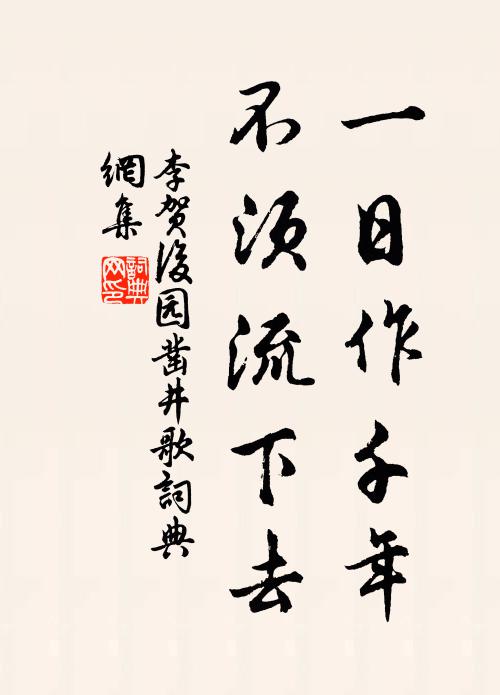 一日作千年
不须流下去
李贺後园凿井歌詞典
網集
詞典网印